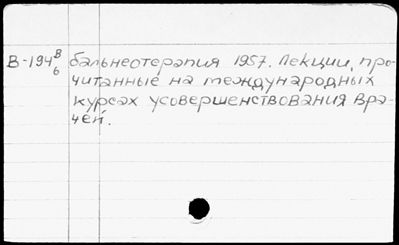 В-194 В/6 бальнеотерапия 1957. Лекции, про-
читанные на международных
курсах усовершенствования вра-
чей.